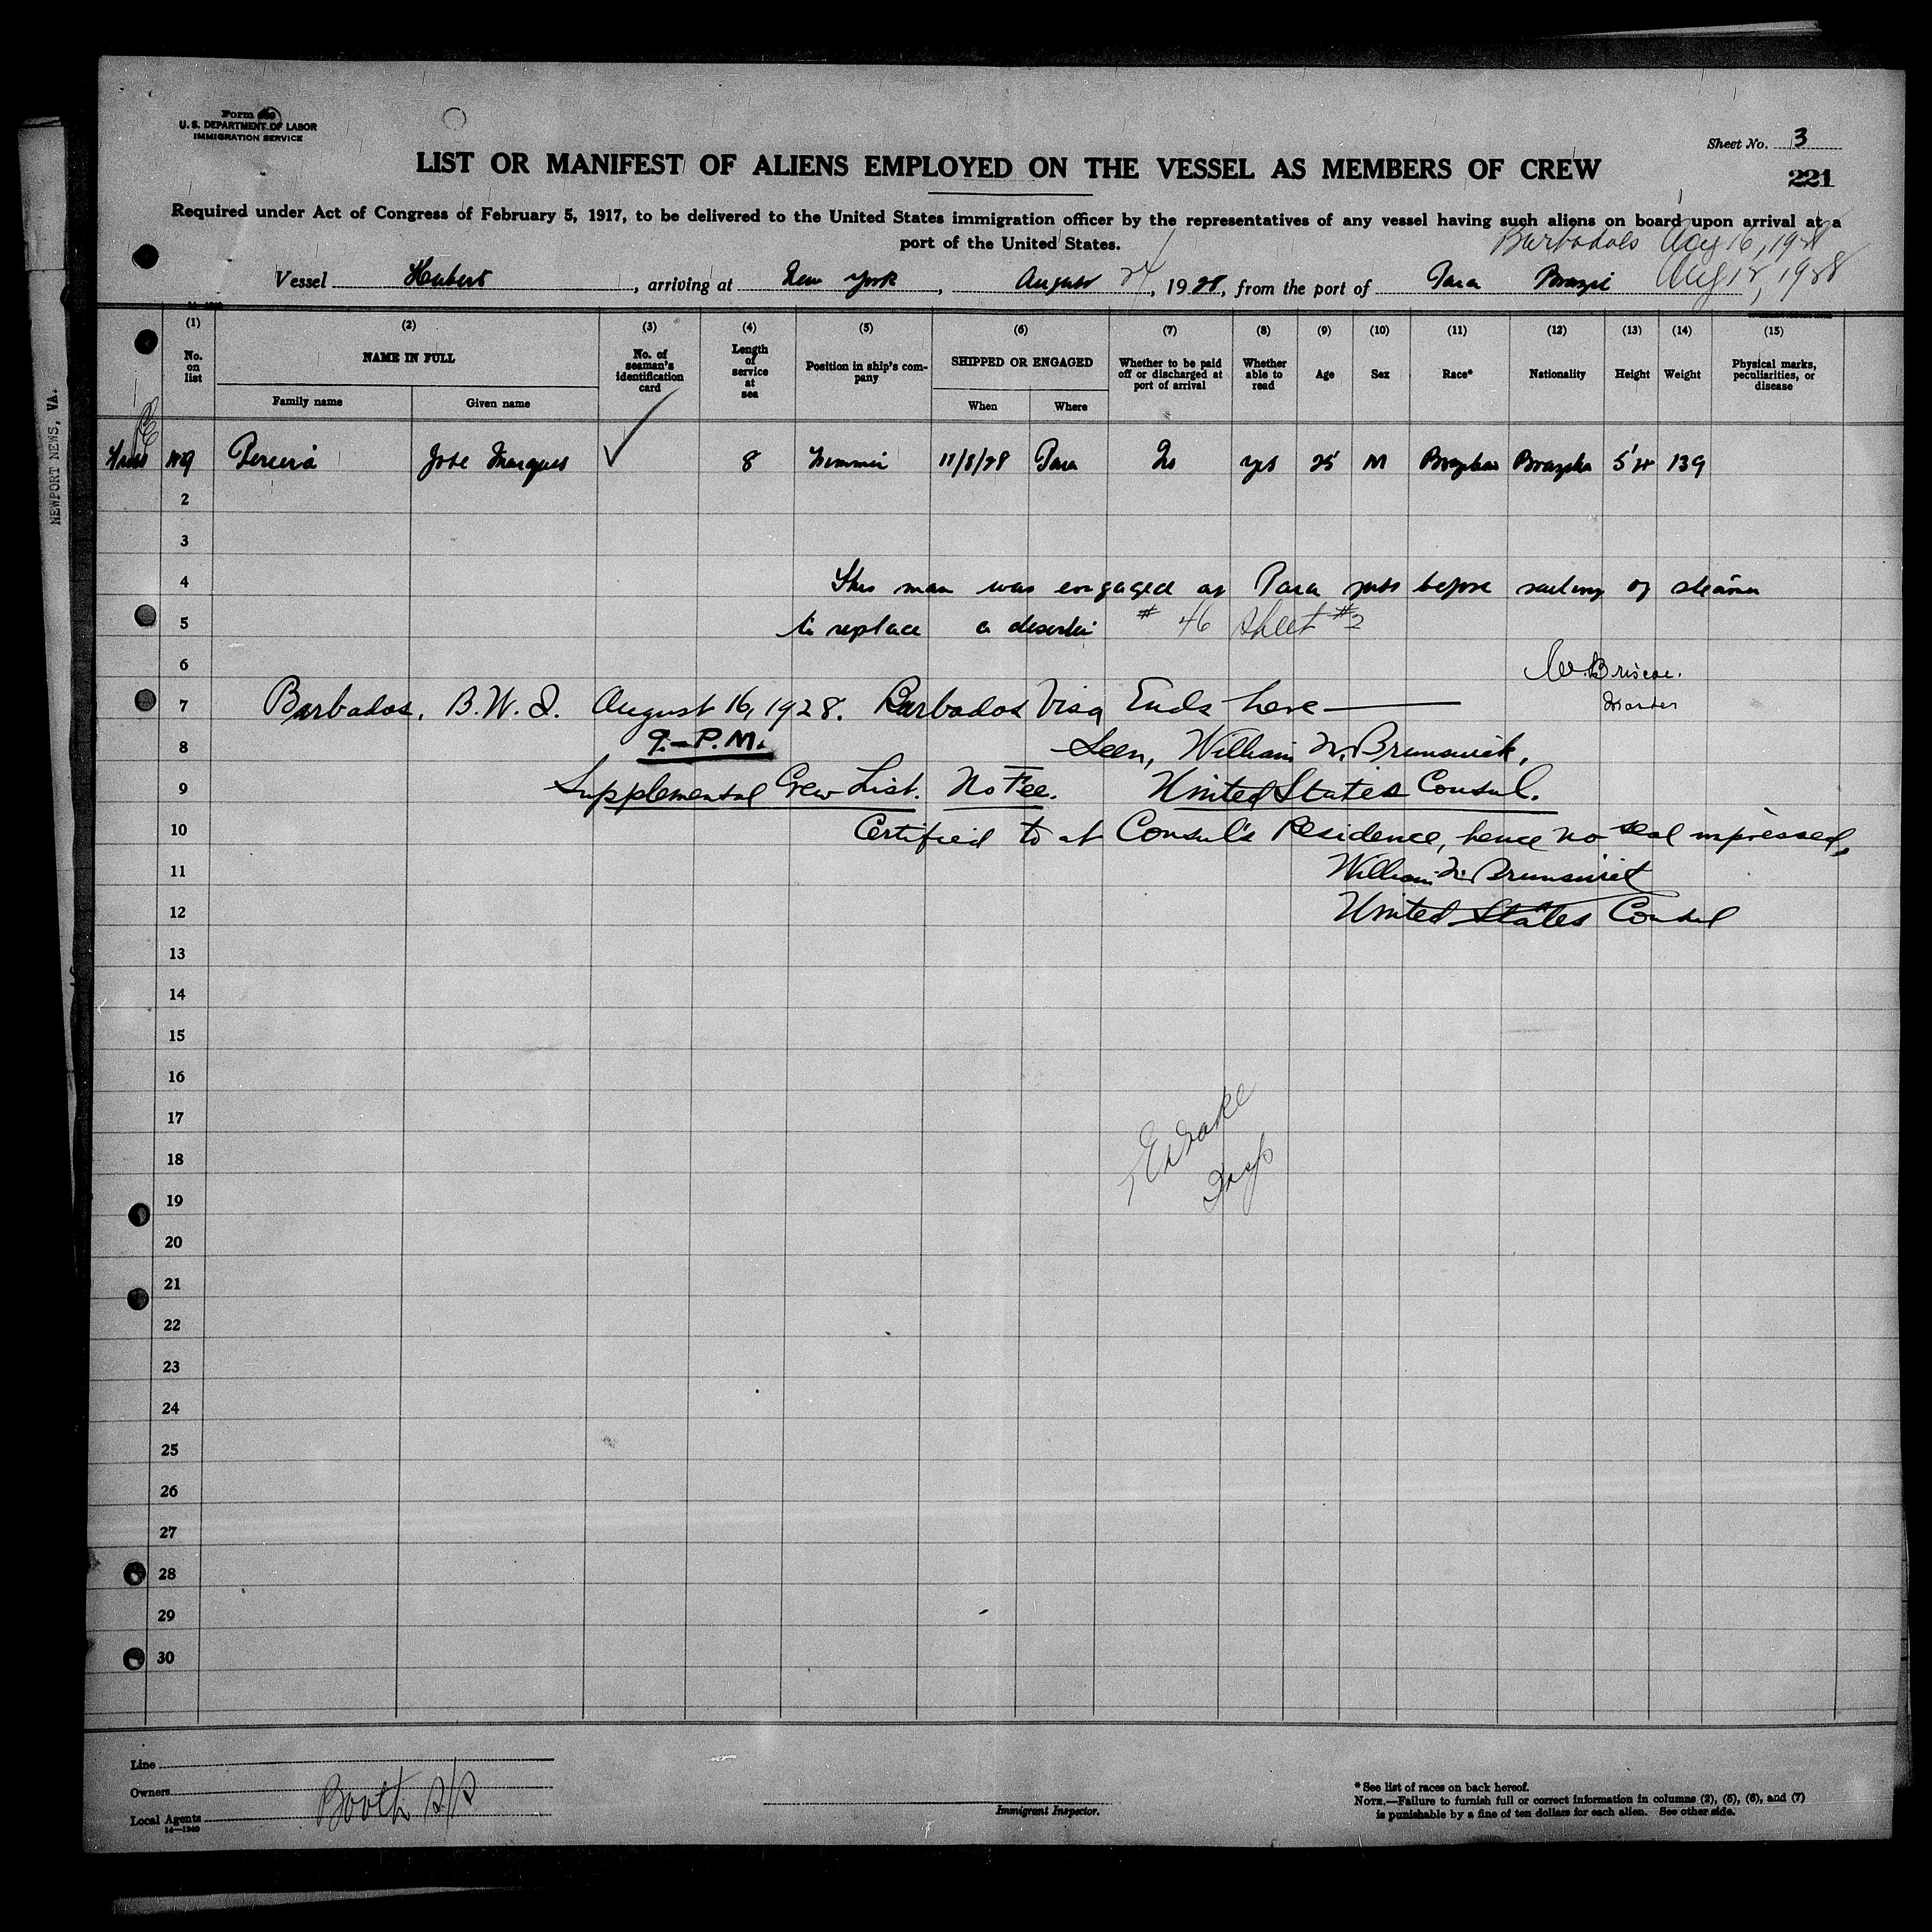 Form
U. S. DEPARTMENT OF LABOR
IMMIGRATION SERVICE
Sheet No. 3
LIST OR MANIFEST OF ALIENS EMPLOYED ON THE VESSEL AS MEMBERS OF CREW
221
Required under Act of Congress of February 5, 1917, to be delivered to the United States immigration officer by the representatives of any vessel having such aliens on board upon arrival at a
port of the United States.
Aug 16, 1928
Vessel Hubert, arriving at New York, August 24, 1928, from the port of Para Brazil Aug 12, 1928
(1) (2) (3) (4) (5) (6) (7) (8) (9) (10) (11) (12) (13) (14) (15)
No. on list
NAME IN FULL
Family name
Given name
No. of seaman's identification card
Length of service at sea
Position in ship's company
SHIPPED OR ENGAGED
When
Where
Whether to be paid off or discharged at port of arrival
Whether able to read
Age
Sex
Race*
Nationality
Height
Weight
Physical marks, peculiarities, or disease
Pereira Jose Marques 8 Trimmer 11/8/28 Para No yes 25 M 139
2
3
4 This man was engaged at Para just before sailing of steamer
5 to replace a deserter # 46 sheet #2
6 W. Briscoe.
Master
7 Barbados, B.W.I. August 16, 1928. Barbados Visa Ends here
8 9.-P.M. Seen, William W. Brunswick,
9 Supplemental Crew List. No Fee. United States Consul.
10 Certified to at Consul's Residence, hence no seal impressed.
11 William W. Brunswick
12 United States Consul
13
14
15
16
17
18
19
20
21
22
23
24
25
26
27
28
29
30
EDrake
Insp
Line
Owners
Local Agents
Booth S/S
14—1240
Immigrant Inspector.
* See list of races on back hereof.
NOTE.—Failure to furnish full or correct information in columns (2), (5), (6), and (7)
is punishable by a fine of ten dollars for each alien. See other side.
NEWPORT NEWS, VA.